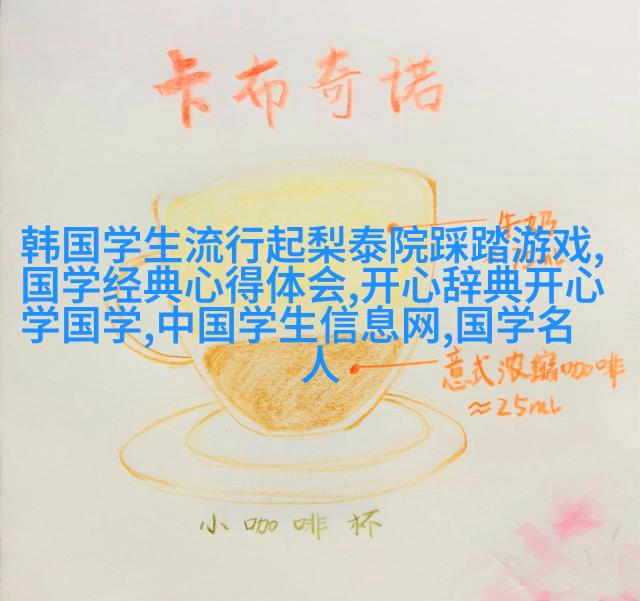 卡布奇诺
牛奶
韩国学生流行起梨泰院踩踏游戏,
国学经典心得体会,开心辞典开心
学国学,中国学生信息网,国学名
人
意式浓缩咖啡
≈25mL
小咖啡杯